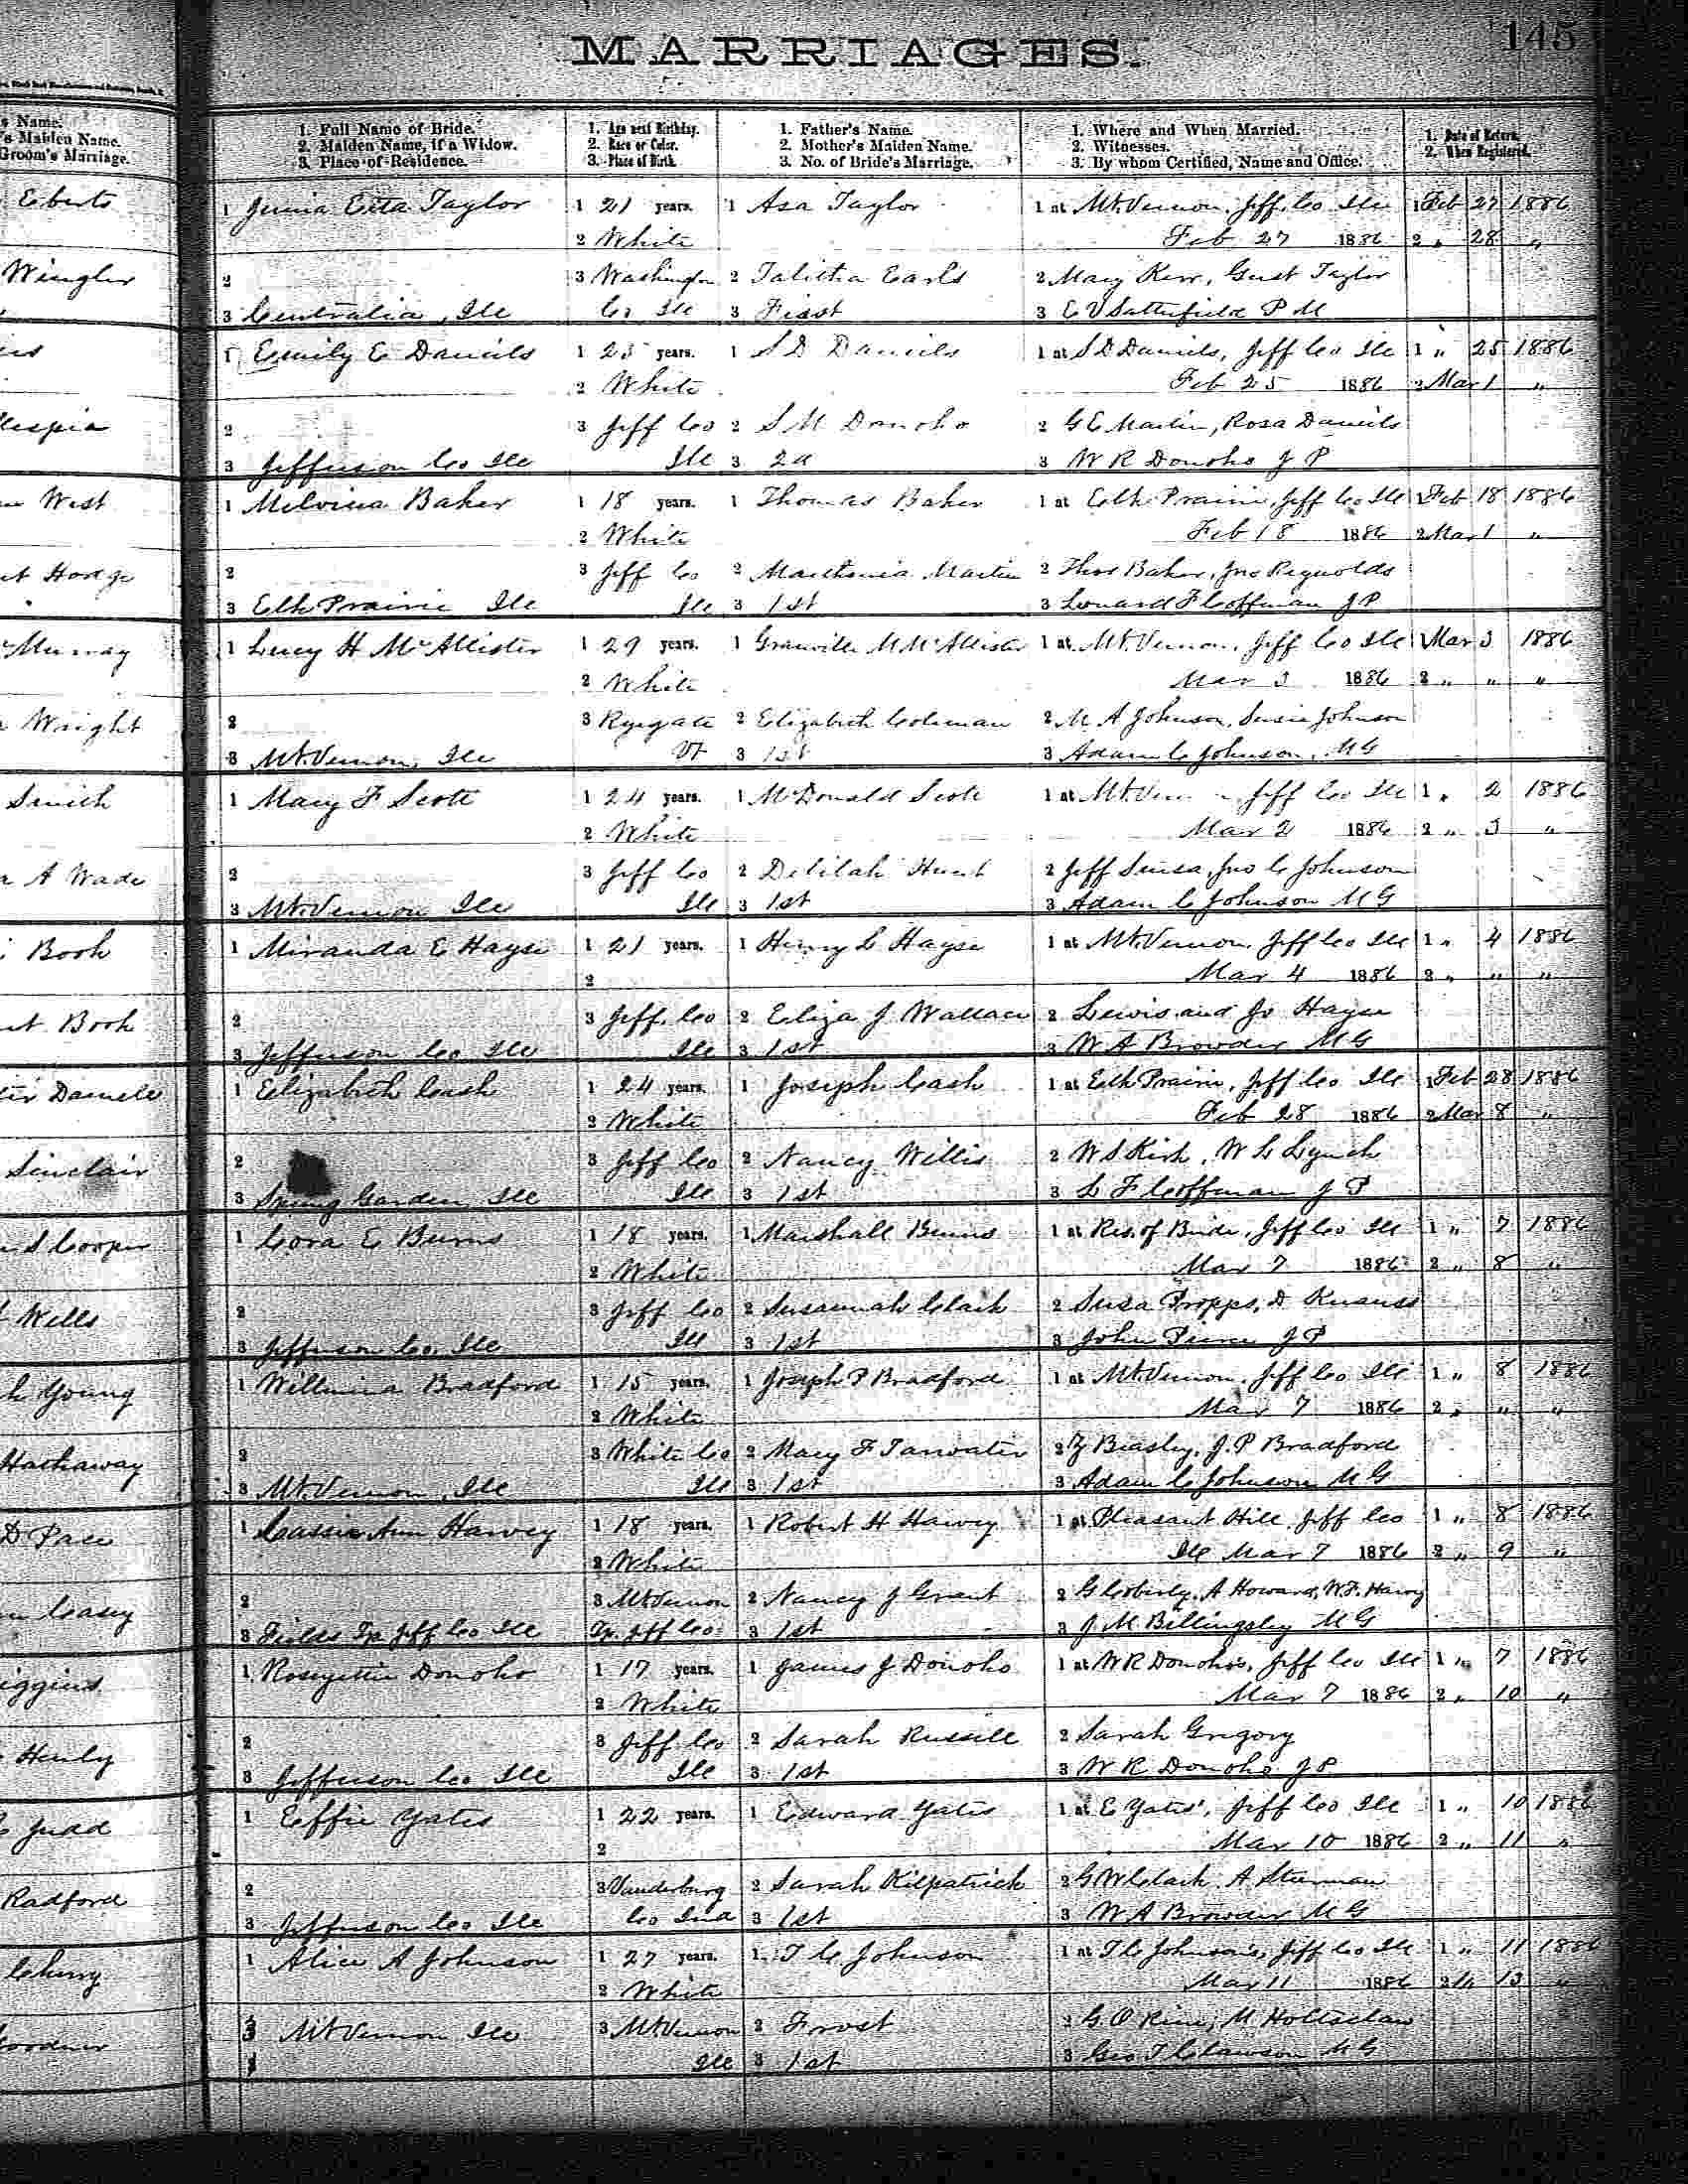 MARRIAGES.
145
s Name.
's Maiden Name.
Groom's Marriage.
1. Full Name of Bride.
2. Maiden Name, if a Widow.
3. Place of Residence.
1. Age next Birthday.
2. Race or Color.
3. Place of Birth.
1. Father's Name.
2. Mother's Maiden Name.
3. No. of Bride's Marriage.
1. Where and When Married.
2. Witnesses.
3. By whom Certified, Name and Office.
1. Date of Return.
2. When Registered.
Eberts 1 Etta Taylor 1 21 years. 1 Asa Taylor 1 at Mt. Vernon, Jeff. Co Ill 1 Feb 27 1886
2 White Feb 27 1886 2 " 28 "
Wingler 2 3 Washington 2 Talitha Earls 2 Mary Kerr, Gust Taylor
3 Centralia, Ill Co Ill 3 First 3 E V Satterfield P M
1 Emily E Daniels 1 23 years. 1 S D Daniels 1 at S D Daniels, Jeff Co Ill 1 " 25 1886
2 White Feb 25 1886 2 Mar 1 "
2 3 Jeff Co 2 S M Donoho 2 G E Martin, Rosa Daniels
3 Jefferson Co Ill Ill 3 2d 3 W R Donoho J P
West 1 Melvina Baker 1 18 years. 1 Thomas Baker 1 at Elk Prairie, Jeff Co Ill 1 Feb 18 1886
2 White Feb 18 1886 2 Mar 1 "
Hodge 2 3 Jeff Co 2 Martin 2 Thos Baker, Jno Reynolds
3 Elk Prairie Ill Ill 3 1st 3 Leonard F Coffman J P
Murray 1 Lucy H McAllister 1 29 years. 1 Granville M McAllister 1 at Mt. Vernon, Jeff Co Ill 1 Mar 3 1886
2 White Mar 3 1886 2 " " "
Wright 2 3 Ryegate 2 Elizabeth Coleman 2 M A Johnson, Susie Johnson
3 Mt. Vernon, Ill Vt 3 1st 3 Adam C Johnson, M G
Smith 1 Mary F Scott 1 24 years. 1 McDonald Scott 1 at Mt. Vernon, Jeff Co Ill 1 " 2 1886
2 White Mar 2 1886 2 " 3 "
A Wade 2 3 Jeff Co 2 Delilah Hunt 2 Jeff Jno C Johnson
3 Mt. Vernon Ill Ill 3 1st 3 Adam C Johnson M G
Book 1 Miranda E Hayse 1 21 years. 1 Henry L Hayse 1 at Mt. Vernon, Jeff Co Ill 1 " 4 1886
2 Mar 4 1886 2 " " "
Book 2 3 Jeff. Co 2 Eliza J Wallace 2 Lewis and Jo Hayse
3 Jefferson Co Ill Ill 3 1st 3 W A Browder M G
Daniels 1 Elizabeth Cash 1 24 years. 1 Joseph Cash 1 at Elk Prairie, Jeff Co Ill 1 Feb 28 1886
2 White Feb 28 1886 2 Mar 8 "
Sinclair 2 3 Jeff Co 2 Nancy Willis 2 W S Kirk, W L Lynch
3 Spring Garden Ill Ill 3 1st 3 L F Coffman J P
S Cooper 1 Cora E Burns 1 18 years. 1 Marshall Burns 1 at Res. of Bride, Jeff Co Ill 1 " 7 1886
2 White Mar 7 1886 2 " 8 "
Wells 2 3 Jeff Co 2 Susannah Clark 2 Propps, D Knauss
3 Jefferson Co. Ill Ill 3 1st 3 John J P
Young 1 Bradford 1 15 years. 1 Joseph P Bradford 1 at Mt. Vernon, Jeff Co Ill 1 " 8 1886
2 White Mar 7 1886 2 " " "
Hathaway 2 3 White Co 2 Mary F Tarwater 2 Beasley, J. P Bradford
3 Mt. Vernon, Ill Ill 3 1st 3 Adam C Johnson M G
D Pace 1 Cassie Ann Harvey 1 18 years. 1 Robert H Harvey 1 at Pleasant Hill, Jeff Co 1 " 8 1886
2 White Ill Mar 7 1886 2 " 9 "
Casey 2 3 Mt. Vernon 2 Nancy J Grant 2 A Howard, W. F. Harvey
3 Fields Tp Jeff Co Ill Tp. Jeff Co 3 1st 3 J. M. Billingsley M G
iggins 1 Donoho 1 17 years. 1 James J Donoho 1 at W R Donoho's, Jeff Co Ill 1 " 7 1886
2 White Mar 7 1886 2 " 10 "
Henly 2 3 Jeff Co 2 Sarah Russell 2 Sarah Gregory
3 Jefferson Co Ill Ill 3 1st 3 W R Donoho J P
Judd 1 Effie Yates 1 22 years. 1 Edward Yates 1 at E Yates', Jeff Co Ill 1 " 10 1886
2 Mar 10 1886 2 " 11 "
Radford 2 3 Vanderburg 2 Sarah Kilpatrick 2 G W Clark, A
3 Jefferson Co Ill Co Ind 3 1st 3 W A Browder M G
Cherry 1 Alice A Johnson 1 27 years. 1 T C Johnson 1 at T C Johnson's, Jeff Co Ill 1 " 11 1886
2 White Mar 11 1886 2 " 13 "
3 Mt Vernon Ill 3 Mt. Vernon 2 Frost 2 M Holtsclaw
Ill 3 1st 3 Geo T Clawson M G